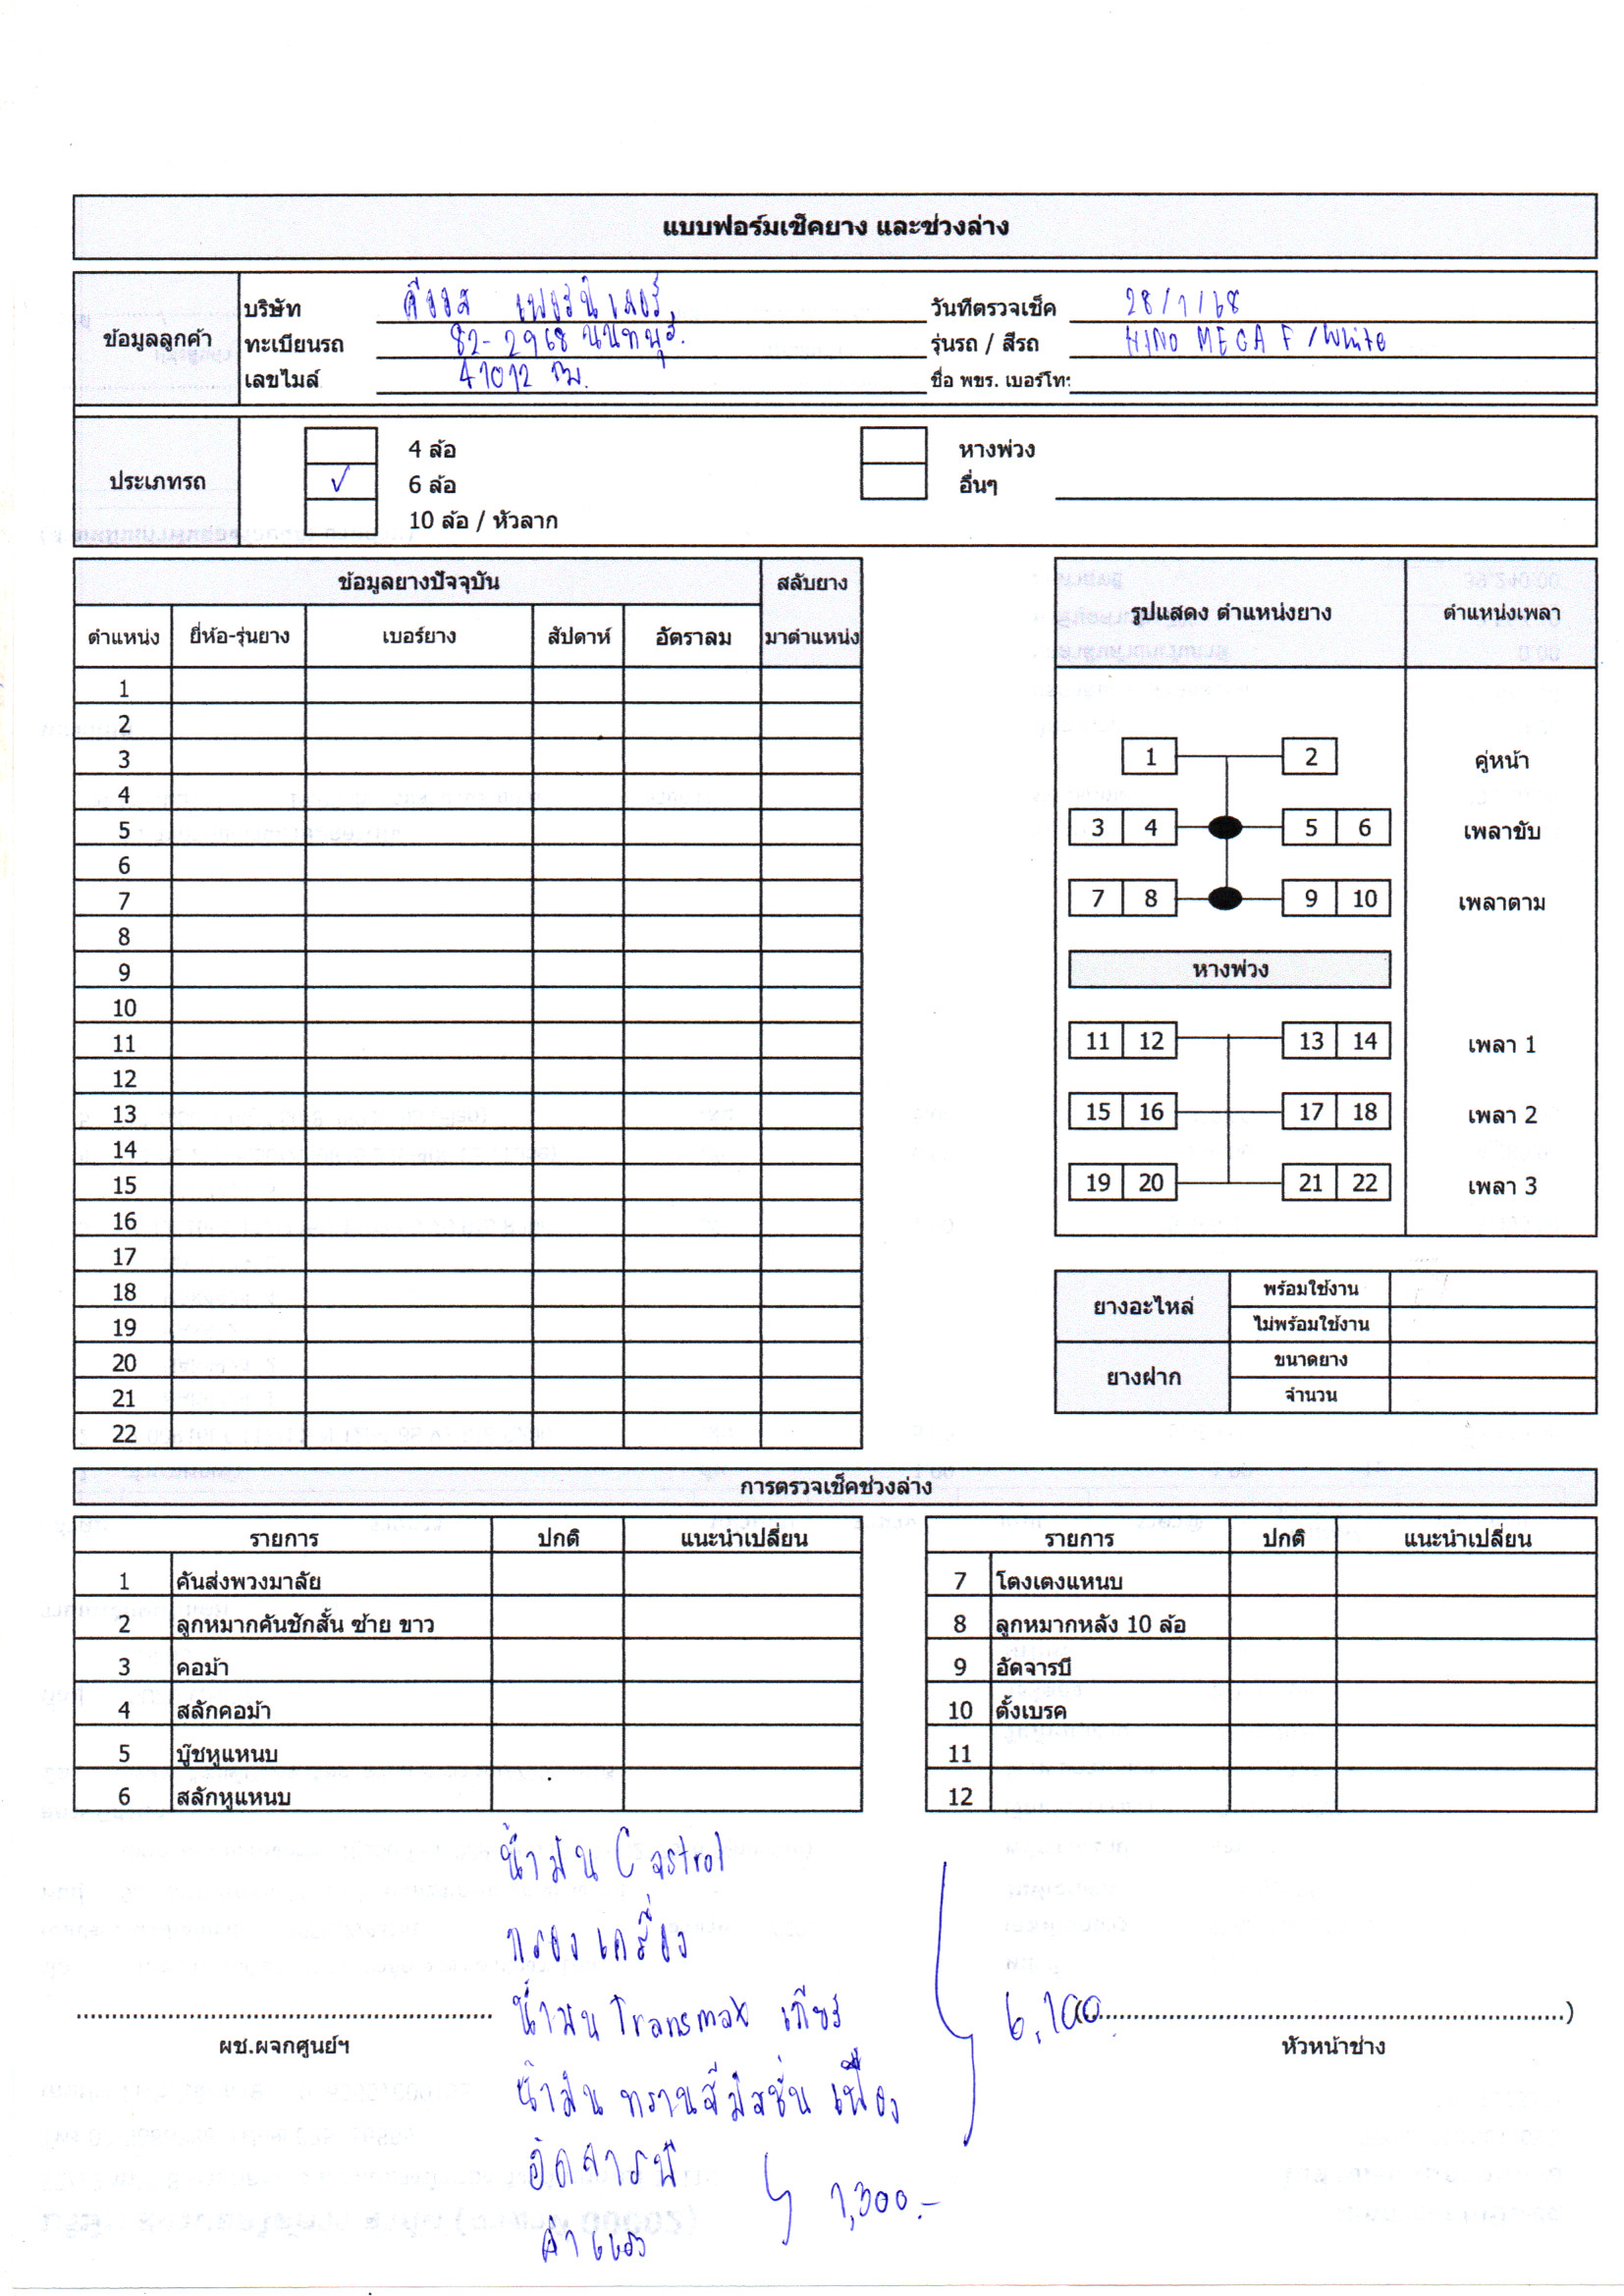 แบบฟอร์มเช็คยาง และช่วงล่าง
ข้อมูลลูกค้า
บริษัท คีออส เฟอร์นิเจอร์ วันที่ตรวจเช็ค 28/1/68
ทะเบียนรถ 82-2968 นนทบุรี รุ่นรถ / สีรถ HINO MEGA F / White
เลขไมล์ 41012 กม. ชื่อ พขร. เบอร์โทร
ประเภทรถ
4 ล้อ หางพ่วง
✓ 6 ล้อ อื่นๆ
10 ล้อ / หัวลาก
ข้อมูลยางปัจจุบัน สลับยาง
ตำแหน่ง ยี่ห้อ-รุ่นยาง เบอร์ยาง สัปดาห์ อัตราลม มาตำแหน่ง
1
2
3
4
5
6
7
8
9
10
11
12
13
14
15
16
17
18
19
20
21
22
รูปแสดง ตำแหน่งยาง ตำแหน่งเพลา
1 2 คู่หน้า
3 4 5 6 เพลาขับ
7 8 9 10 เพลาตาม
หางพ่วง
11 12 13 14 เพลา 1
15 16 17 18 เพลา 2
19 20 21 22 เพลา 3
ยางอะไหล่ พร้อมใช้งาน
ไม่พร้อมใช้งาน
ยางฝาก ขนาดยาง
จำนวน
การตรวจเช็คช่วงล่าง
รายการ ปกติ แนะนำเปลี่ยน
1 คันส่งพวงมาลัย
2 ลูกหมากคันชักสั้น ซ้าย ขาว
3 คอม้า
4 สลักคอม้า
5 บู๊ชหูแหนบ
6 สลักหูแหนบ
รายการ ปกติ แนะนำเปลี่ยน
7 โตงเตงแหนบ
8 ลูกหมากหลัง 10 ล้อ
9 อัดจารบี
10 ตั้งเบรค
11
12
น้ำมัน Castrol
กรองเครื่อง
น้ำมัน Transmax เกียร์
น้ำมัน ทรานสมิสชั่น เฟือง
6,100
อัดจารบี
ค่าแรง
1,300.-
ผช.ผจกศูนย์ฯ
)
หัวหน้าช่าง